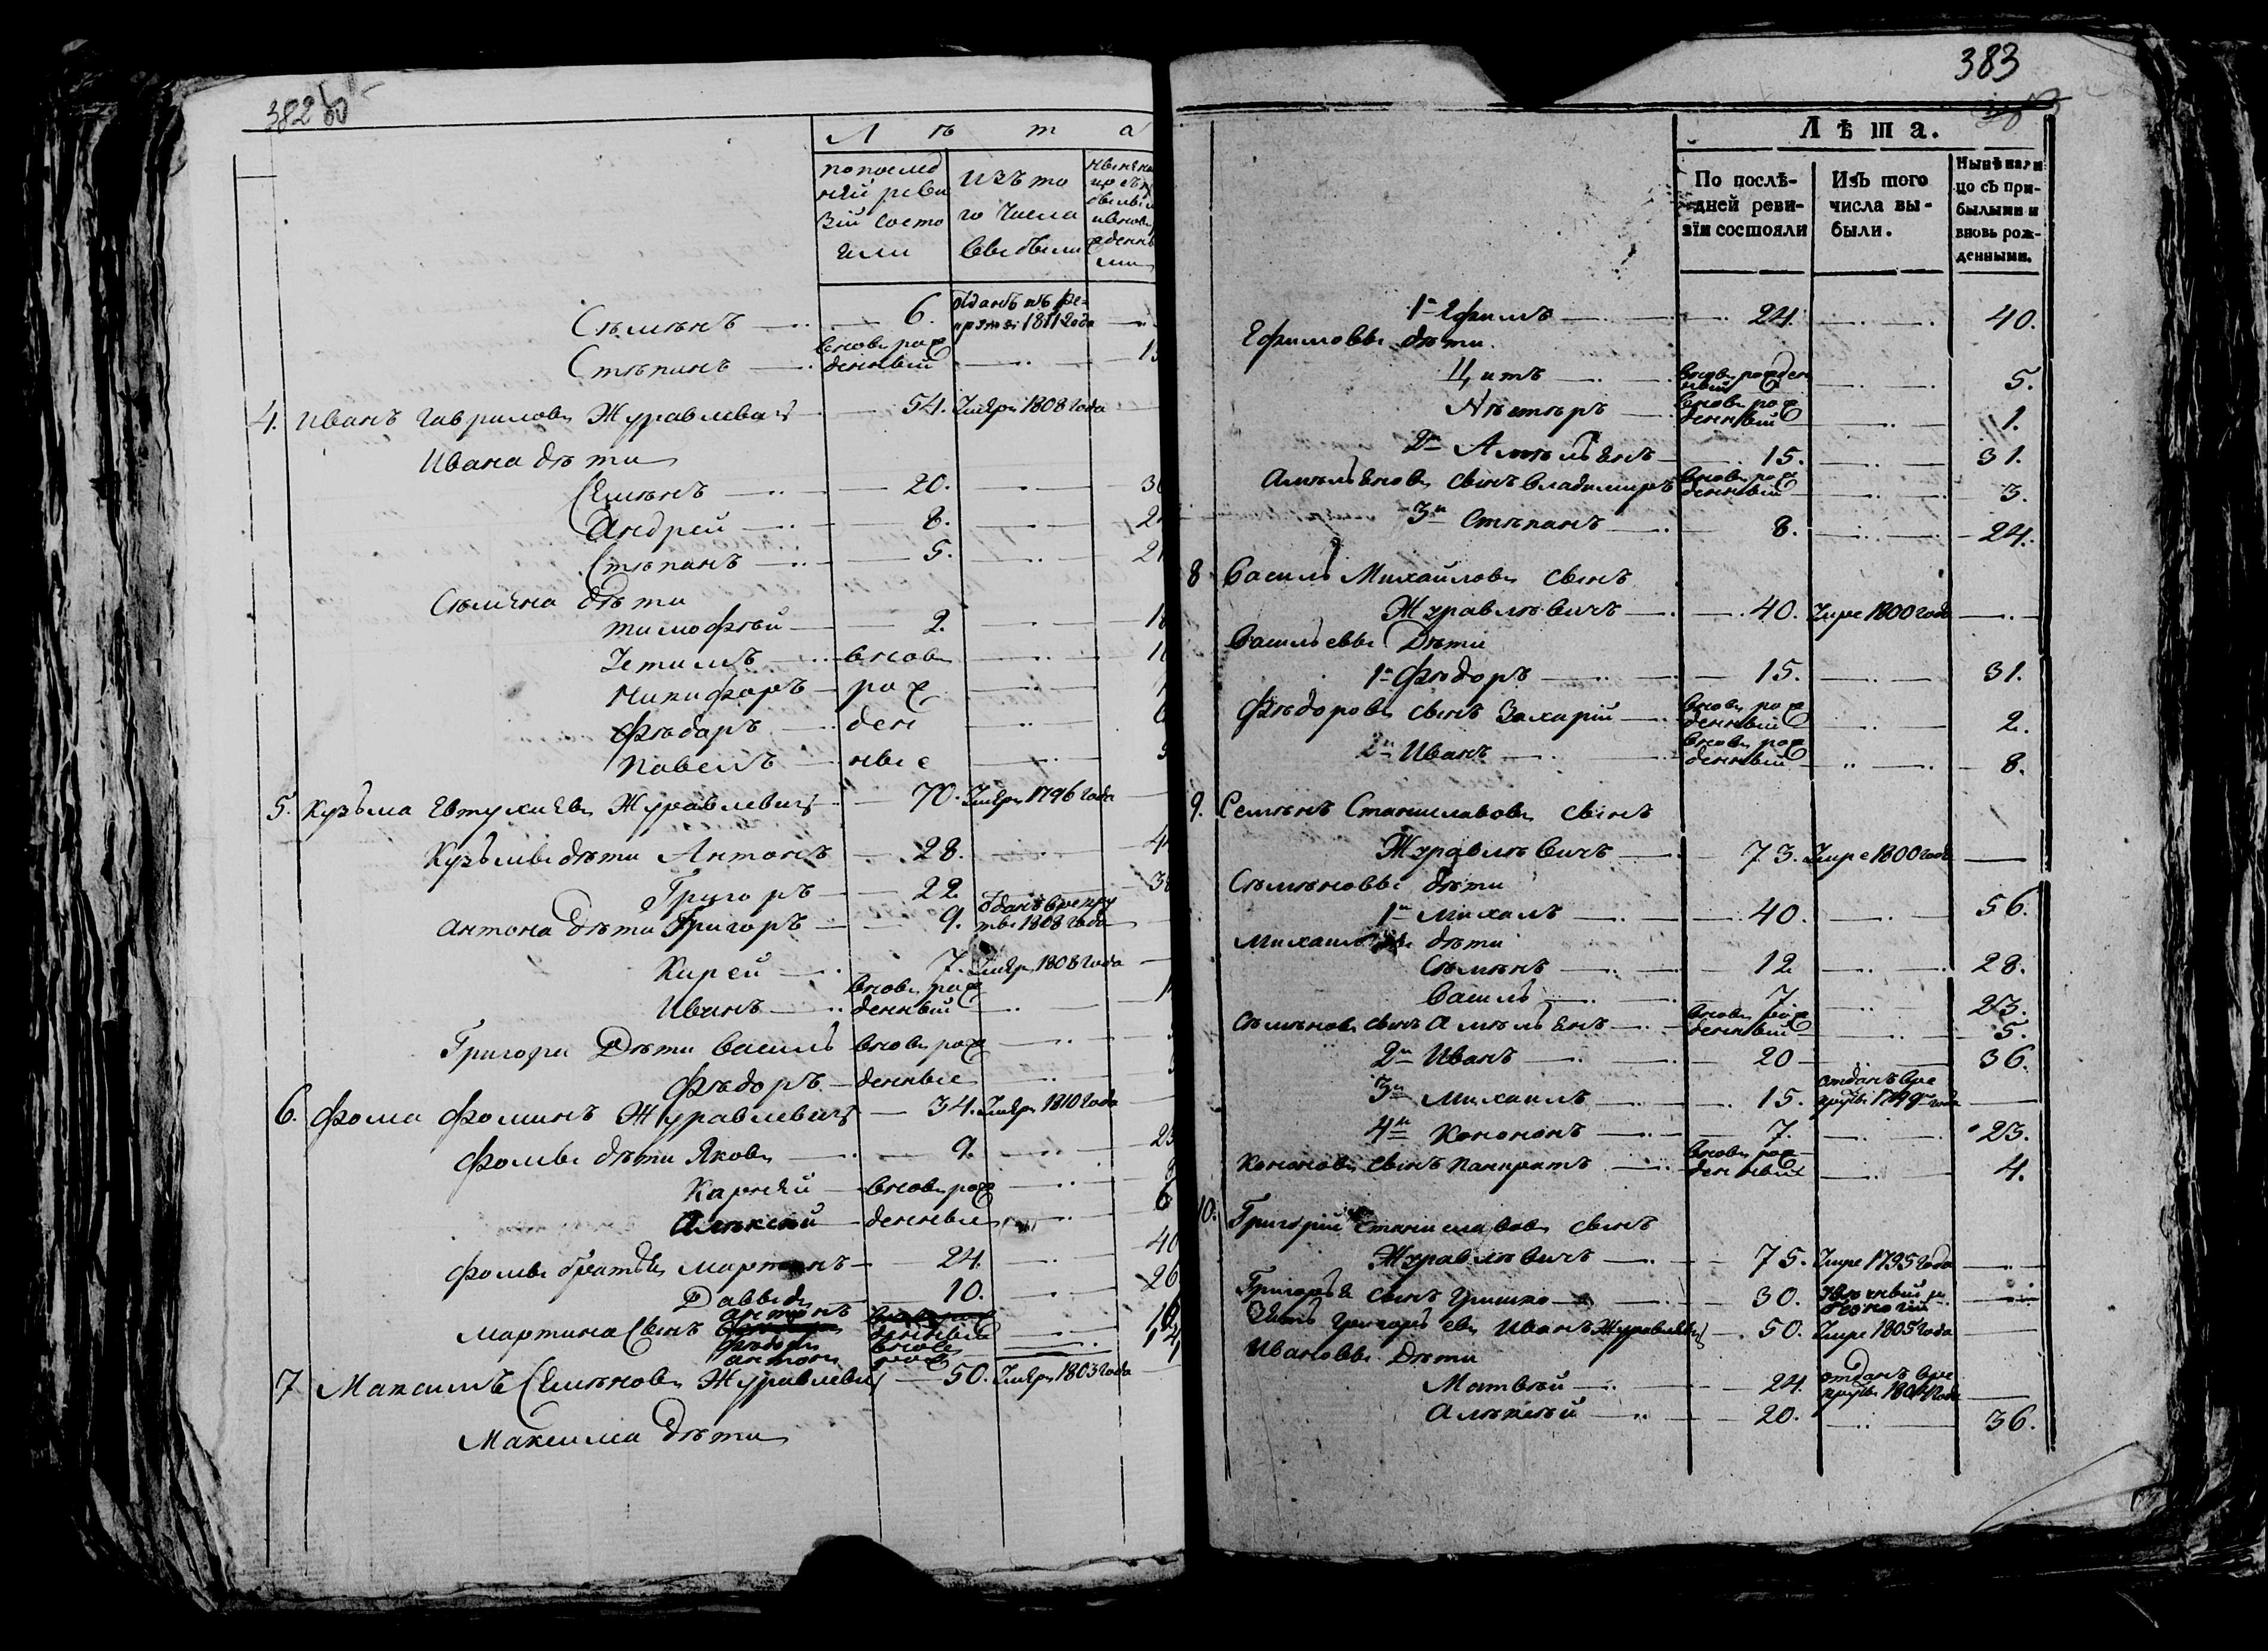 382 об
Л ѣ т а
по послѣд
ней реви
зіи состо
яли
изъ то
го числа
выбыли
Сѣмѣнъ 6. отданъ въ ре-
круты 1811 года
Стѣпанъ вновь рож
денный
4. Иванъ Гавриловъ Журавлевичъ 54. Умеръ 1808 года
Ивана дѣти
Семѣнъ 20.
Андрей 8.
Стѣпанъ 5.
Сѣмена дѣти
Тимофѣй 2.
вновь
Никифоръ рож
Фѣдаръ ден
Павелъ ные
5. Кузьма Евтухиевъ Журавлевичъ 70. Умеръ 1796 года
Кузьмы дѣти Антонъ 28.
Григоръ 22
Антона дѣти Григоръ 9. отданъ в рекру
ты 1808 года
Кирей 7. Умеръ 1808 года
Иванъ вновь рож
денный
Григора Дѣти Василь вновь рож
Фѣдоръ денные
6. Фома Фоминъ Журавлевичъ 34. Умеръ 1810 года
Фомы дѣти Яковъ 9.
Карней вновь рож
Алѣксѣй денные 6
Фомы братья Мартинъ 24. 40
Давыдъ 10. 26
Мартина Сынъ
антонъ
денный
вновь
рож
7 Максимъ Семѣновъ Журавлевичъ 50. Умеръ 1803 года
Максима Дѣти
383
Лѣта.
По послѣ-
дней реви-
зіи состояли
Изъ того
числа вы-
были.
Нынѣ нали
цо съ при-
былыми и
вновь рож-
денными.
1й Ефимъ 24. 40.
Ефимовы дѣти.
Титъ вновь рожден
ный 5.
Нѣстѣръ вновь рож
денный 1.
2й Амѣльянъ 15. 31.
Амѣльяновъ сынъ Владимиръ вновь рож
денный 3.
3й Стѣпанъ 8. 24.
8 Василь Михайловъ сынъ
Журавлѣвичъ 40. Умре 1800 года
Васильевы Дѣти
1й Фѣдоръ 15. 31.
Фѣдоровъ сынъ Захарій вновь рож
денный 2.
2й Иванъ вновь рож
денный 8.
9. Семѣнъ Станиславовъ сынъ
Журавлѣвичъ 73. Умре 1800 года
Сѣмѣновы дѣти
1й Михалъ 40. 56.
дѣти
Сѣмѣнъ 12 28.
Василь 7. 23.
Сѣмѣновъ сынъ Амѣльянъ вновь рож
денный 5.
2й Иванъ 20 36.
3й Михаилъ 15. отданъ в ре
круты 1799 года
4й Кононъ 7. 23.
Кононовъ сынъ Панкратъ вновь рож
денный 4.
10. Григорій Станиславовъ сынъ
Журавлѣвичъ 75. Умре 1795 года
Григорья сынъ Гришко 30.
Григорьевъ Иванъ Журавлевичъ 50. Умре 1805 года
Ивановы Дѣти
Матвѣй 24. отданъ в ре
круты 1804 года
Алѣксѣй 20. 36.